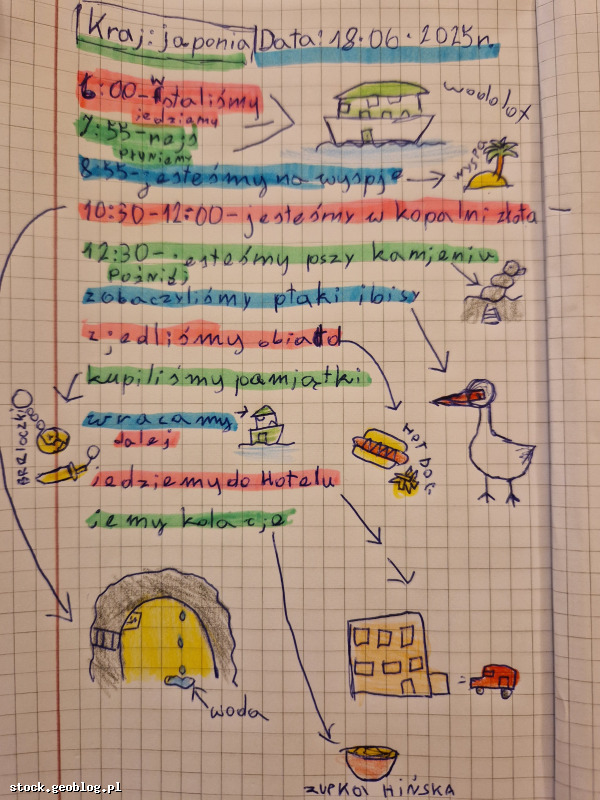 Kraj: japonia Data: 18.06.2025r.
6:00-wstaliśmy
jedziemy
7:55-najs
płyniemy
8:55-jesteśmy na wyspje
wodolot
wyspa
10:30-12:00-jesteśmy w kopalni złota
12:30-jesteśmy pszy kamjeniu
Poźniej
zobaczyliśmy ptaki ibisy
zjedliśmy obiad
kupiliśmy pamjątki
BRELOCZKI
wracamy
dalej
HOT DOG
jedziemy do Hotelu
jemy kolacje
woda
ZUPKA HIŃSKA
stock.geoblog.pl